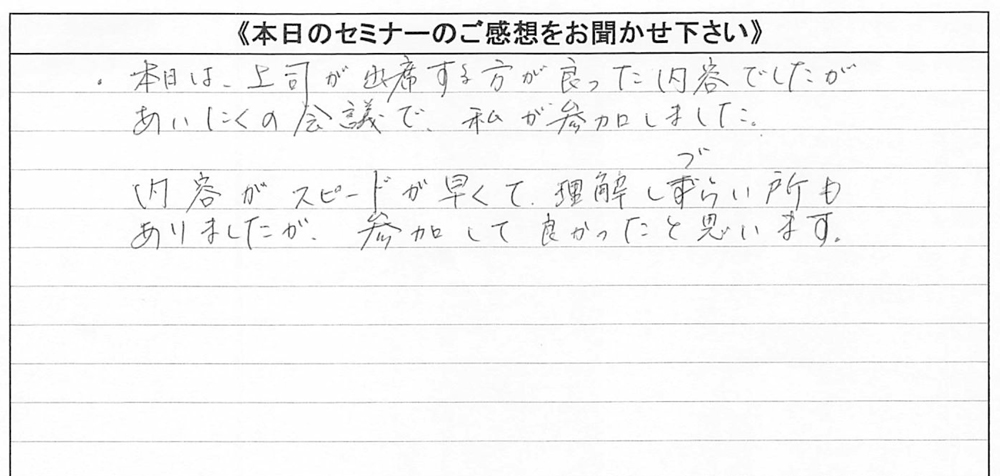 《本日のセミナーのご感想をお聞かせ下さい》
・本日は、上司が出席する方が良った内容でしたが
あいにくの会議で、私が参加しました。
内容がスピードが早くて、理解しづらい所も
ありましたが、参加して良かったと思います。